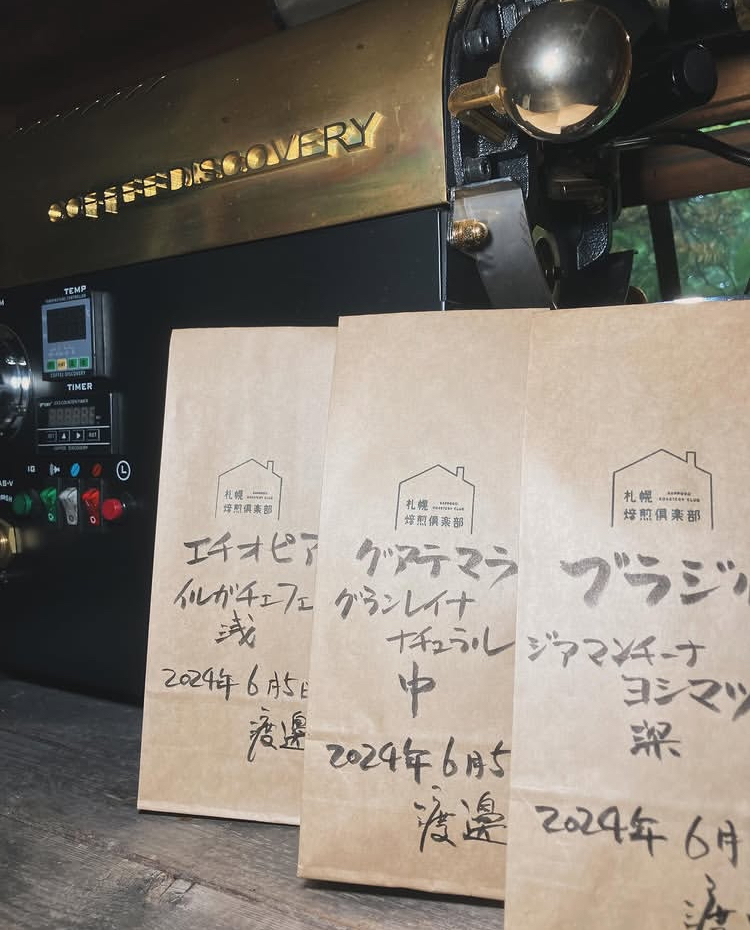 COFFEE DISCOVERY
TEMP
TEMPERATURE CONTROLLER
COFFEE DISCOVERY
TIMER
COFFEE DISCOVERY
IG
札幌
SAPPORO
ROASTERY CLUB
焙煎倶楽部
エチオピア
イルガチェフェ
浅
2024年6月5日
渡邊
札幌
SAPPORO
ROASTERY CLUB
焙煎倶楽部
グアテマラ
グランレイナ
ナチュラル
中
2024年6月5
渡邊
札幌
SAPPORO
ROASTERY CLUB
焙煎倶楽部
ブラジル
ジアマンチーナ
ヨシマツ
深
2024年6月
渡